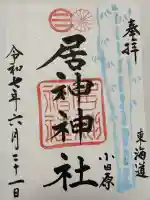 奉拝
東海道
小田原
居神神社
令和七年六月二十一日